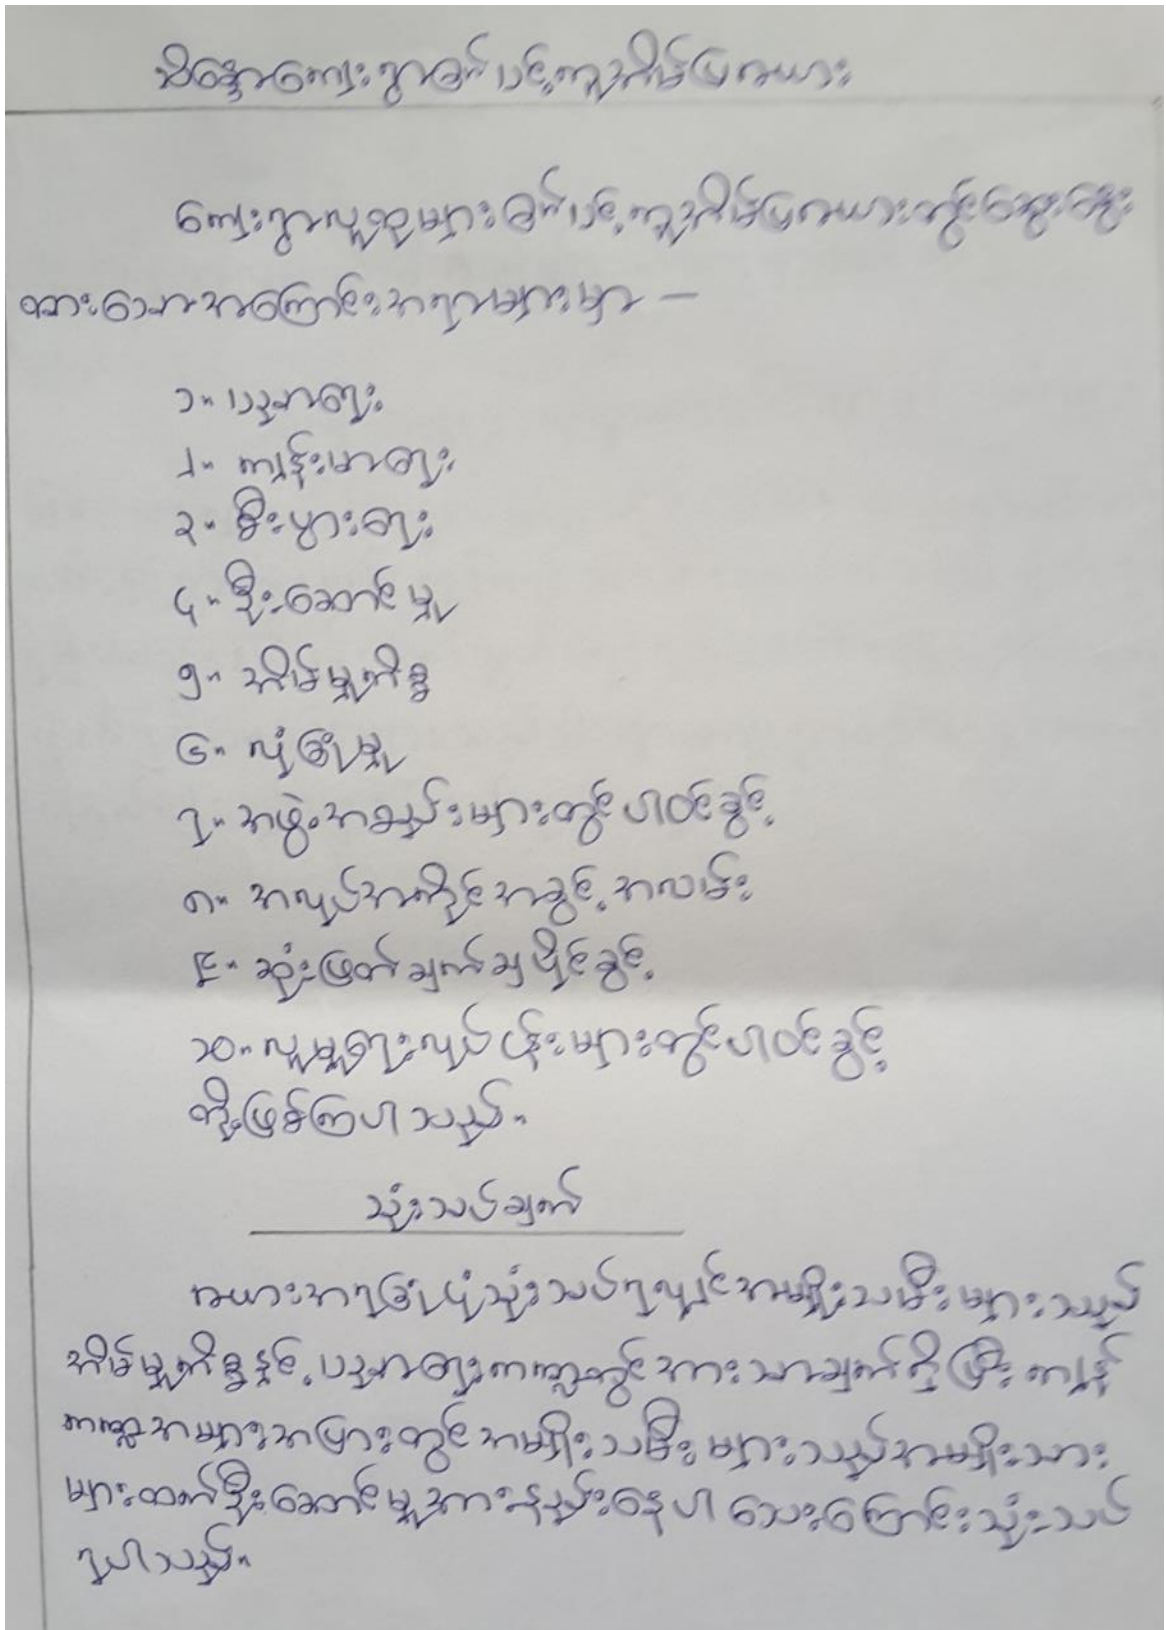 ကျေးရွာ ပင့်ကူအိမ်ပြဇယား
ကျေးရွာလူထုများ ပင့်ကူအိမ်ပြဇယားတွင် ဆွေးနွေး
ထားသော အကြောင်းအရာများမှာ —
၁။ ပညာရေး
၂။ ကျန်းမာရေး
၃။ စီးပွားရေး
၄။ ဦးဆောင်မှု
၅။ အိမ်မှုကိစ္စ
၆။ လုံခြုံမှု
၇။ အဖွဲ့အစည်းများတွင် ပါဝင်ခွင့်
၈။ အလုပ်အကိုင်အခွင့်အလမ်း
၉။ ဆုံးဖြတ်ချက်ချပိုင်ခွင့်
၁၀။ လူမှုရေးလုပ်ငန်းများတွင် ပါဝင်ခွင့်
တို့ဖြစ်ကြပါသည်။
သုံးသပ်ချက်
ဇယားအရ ခြုံငုံသုံးသပ်ရလျှင် အမျိုးသမီးများသည်
အိမ်မှုကိစ္စနှင့် ပညာရေးကဏ္ဍတွင် အားသာချက်ရှိပြီး ကျန်
ကဏ္ဍအများအပြားတွင် အမျိုးသမီးများသည် အမျိုးသား
များထက် ဦးဆောင်မှုအားနည်းနေပါသေးကြောင်း သုံးသပ်
ရပါသည်။